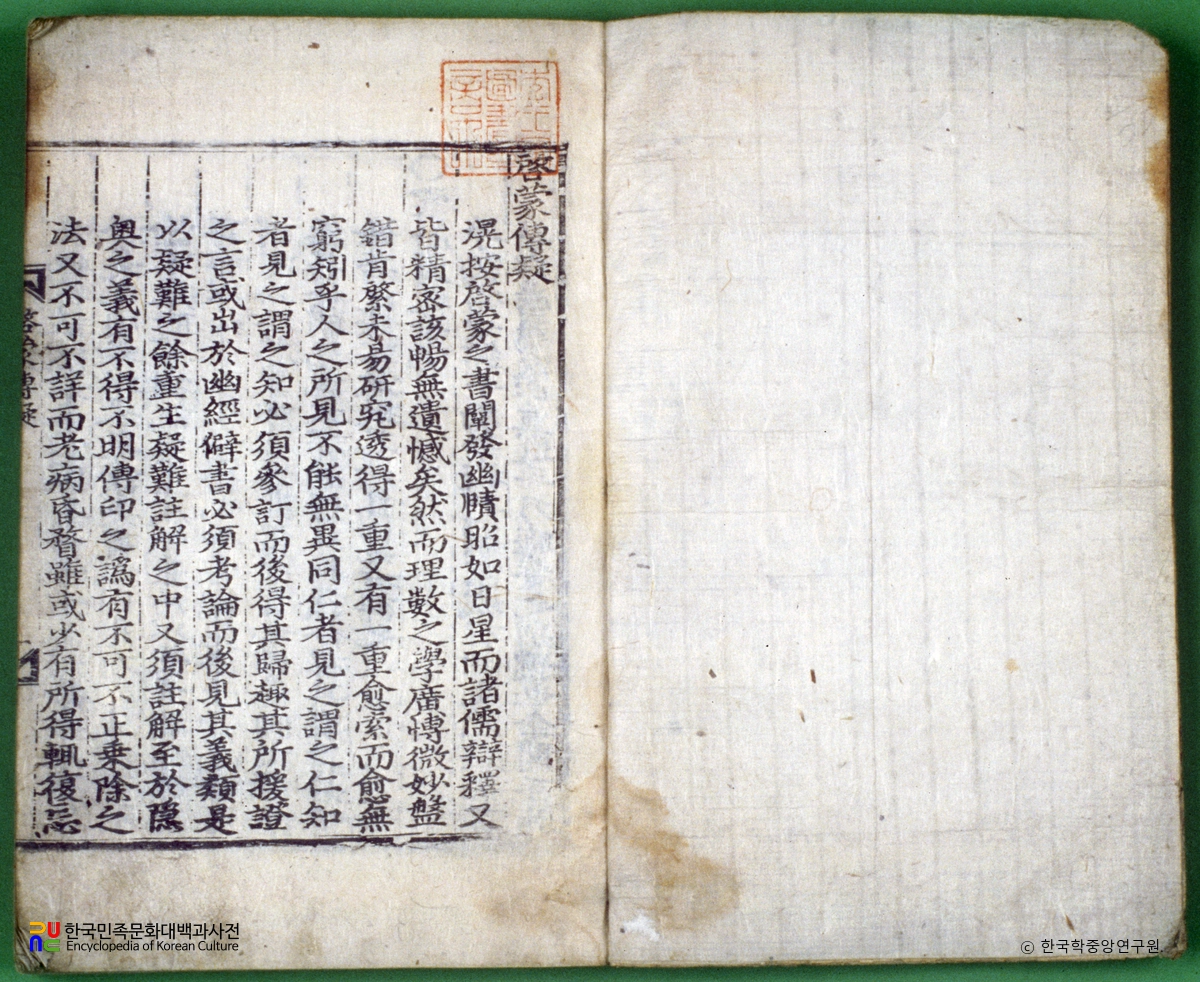 啓蒙傳疑
滉按啓蒙之書闡發幽賾昭如日星而諸儒辯釋又
皆精密該暢無遺憾矣然而理數之學廣博微妙盤
錯肯綮未易研究透得一重又有一重愈索而愈無
窮矧乎人之所見不能無異同仁者見之謂之仁知
者見之謂之知必須參訂而後得其歸趣其所援證
之言或出於幽經僻書必須考論而後見其義類是
以疑難之餘重生疑難註解之中又須註解至於隱
奧之義有不得不明傳印之譌有不可不正乗除之
法又不可不詳而老病昏瞀雖或少有所得輒復忘
啓蒙傳疑
한국민족문화대백과사전
Encyclopedia of Korean Culture
ⓒ 한국학중앙연구원.